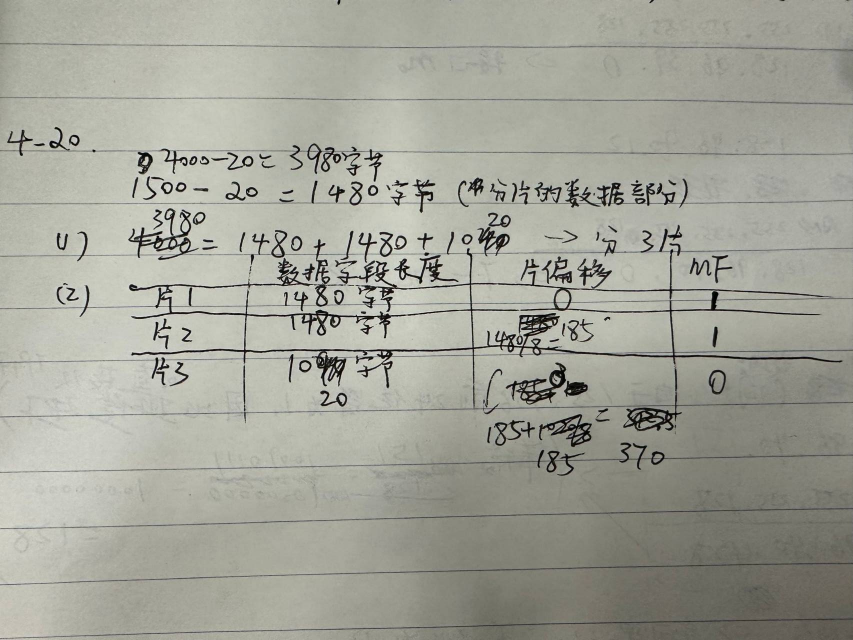 4-20.
4000-20= 3980字节
1500 - 20 = 1480字节 (分片的数据部分)
3980 20
(1) = 1480 + 1480 + 10 → 分 3片
(2) 数据字段长度 片偏移 MF
片1 1480 字节 0 1
片2 1480 字节 1480/8= 185 1
片3 10 字节 0
20
185+ =
185 370